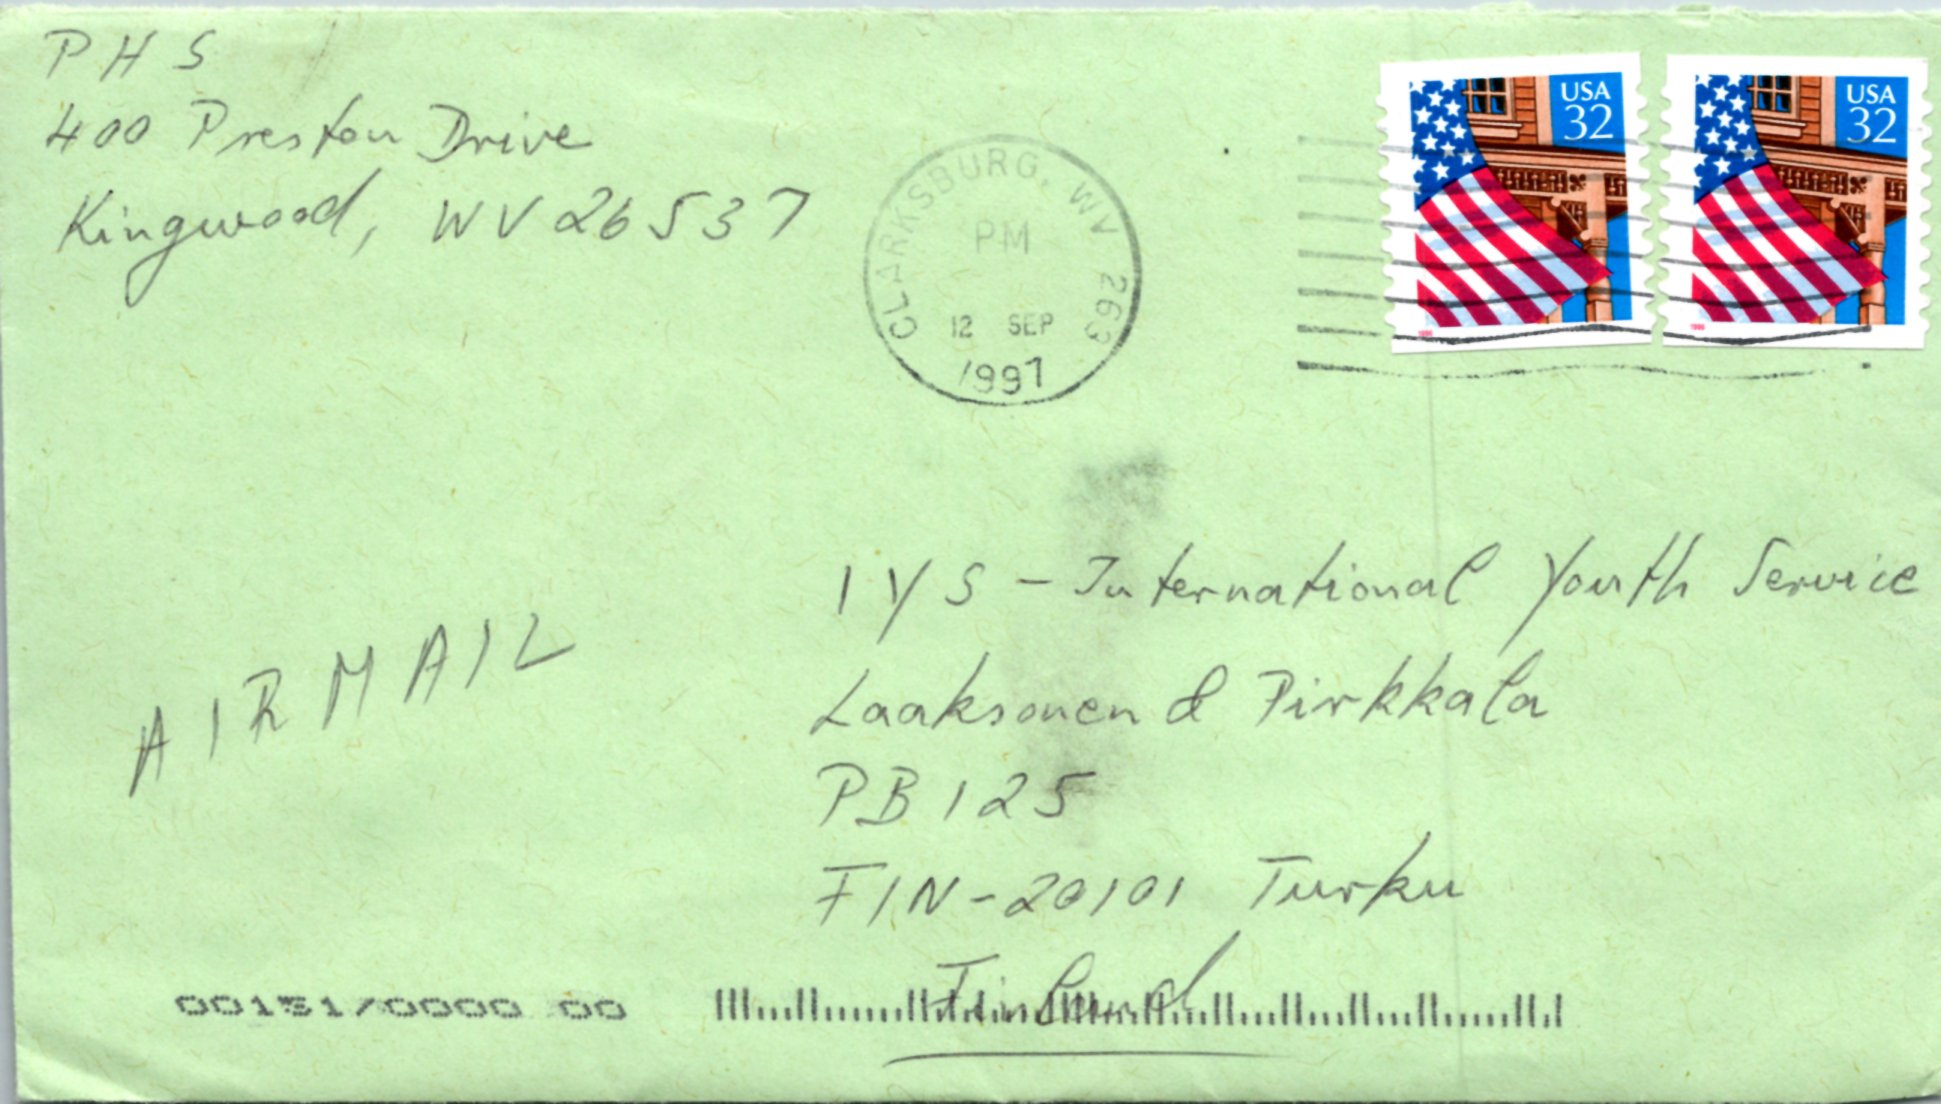 P H S
400 Preston Drive
Kingwood, WV 26537
CLARKSBURG, WV 263
PM
12 SEP
1997
USA
32
USA
32
1996
1996
AIRMAIL
IYS - International Youth Service
Laaksonen & Pirkkala
PB 125
FIN-20101 Turku
Finland